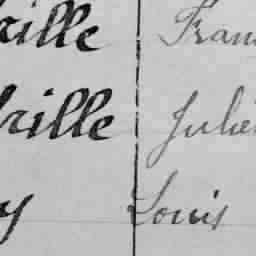 rille Fran
rille Julie
y Louis